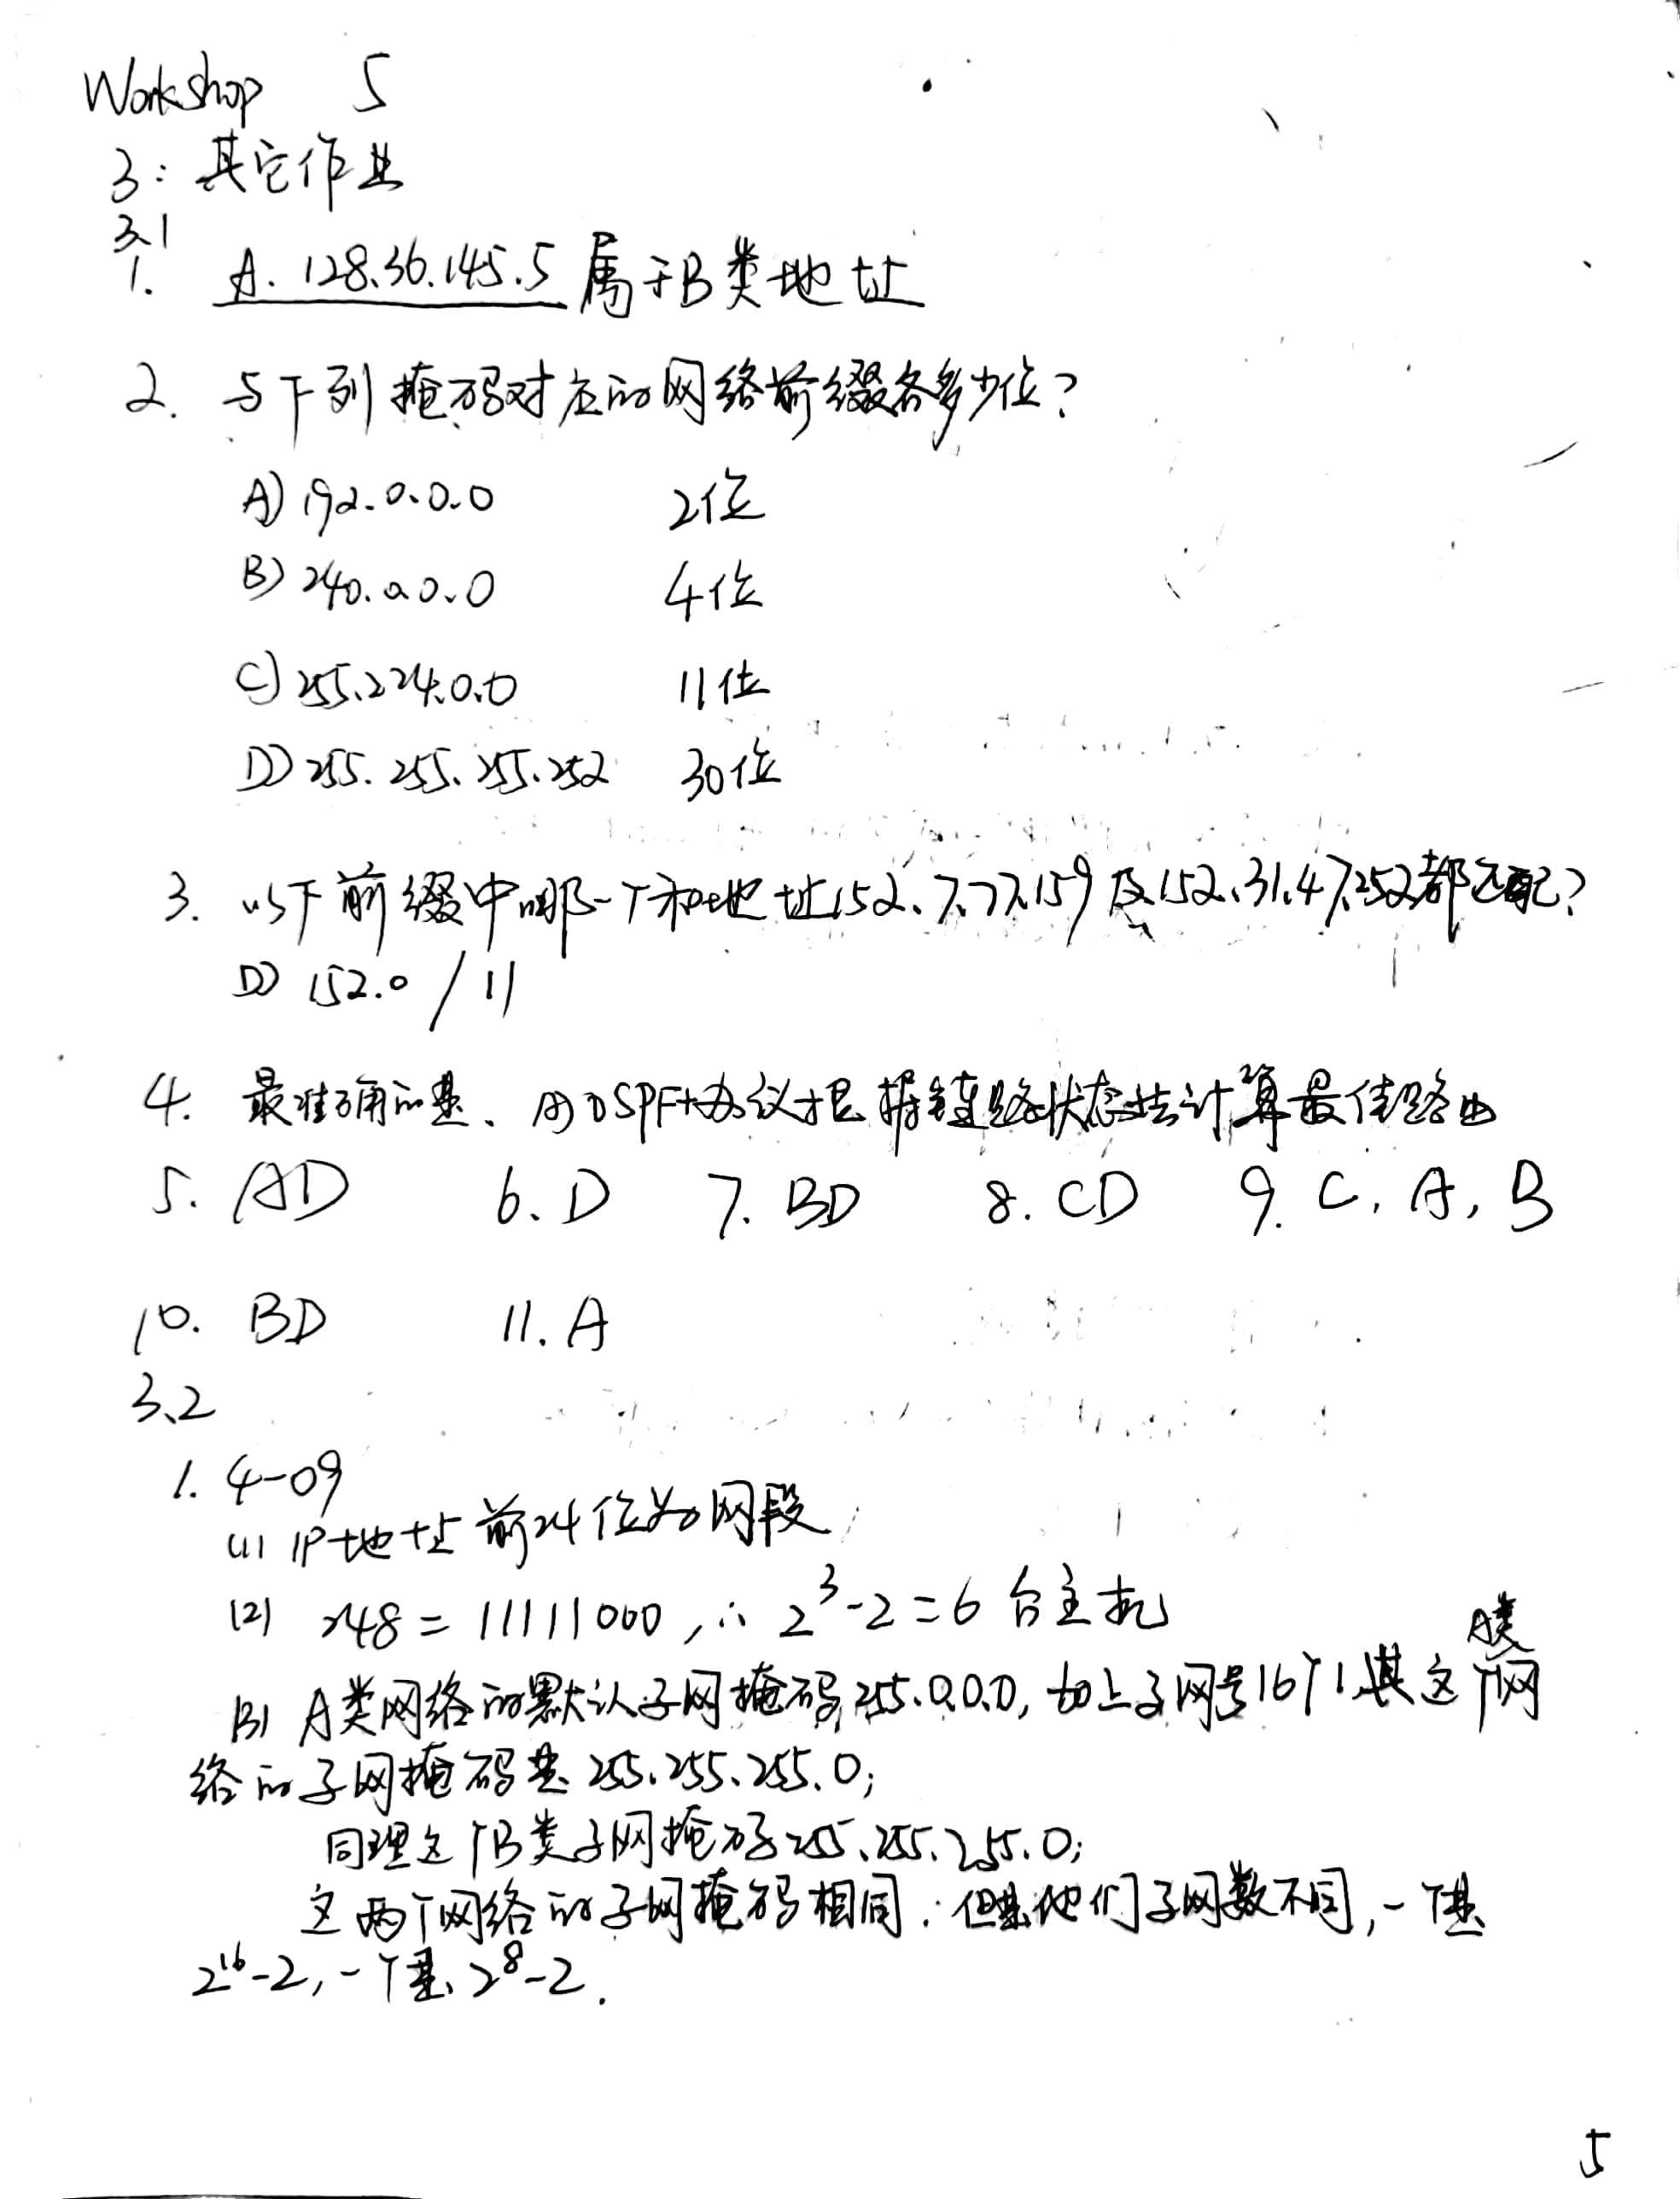 Workshop 5
3: 其它作业
3.1
1. A. 128.36.145.5 属于B类地址
2. 与下列掩码对应的网络前缀各多少位?
A) 192.0.0.0 2位
B) 240.0.0.0 4位
C) 255.224.0.0 11位
D) 255.255.255.252 30位
3. 以下前缀中哪一个和地址152.7.77.159及152.31.47.252都匹配?
D) 152.0/11
4. 最准确的是、A) OSPF协议根据链路状态法计算最佳路由
5. AD 6. D 7. BD 8. CD 9. C, A, B
10. BD 11. A
3.2
1. 4-09
(1) IP地址前24位为网段
(2) 248 = 11111000, ∴ 2³-2=6 台主机
(3) A类网络的默认子网掩码255.0.0.0, 加上子网号16个1,其这个A类网
络的子网掩码是255.255.255.0;
同理这个B类子网掩码255.255.255.0;
这两个网络的子网掩码相同. 但是他们子网数不同,一个是
2¹⁶-2,一个是、2⁸-2.
5